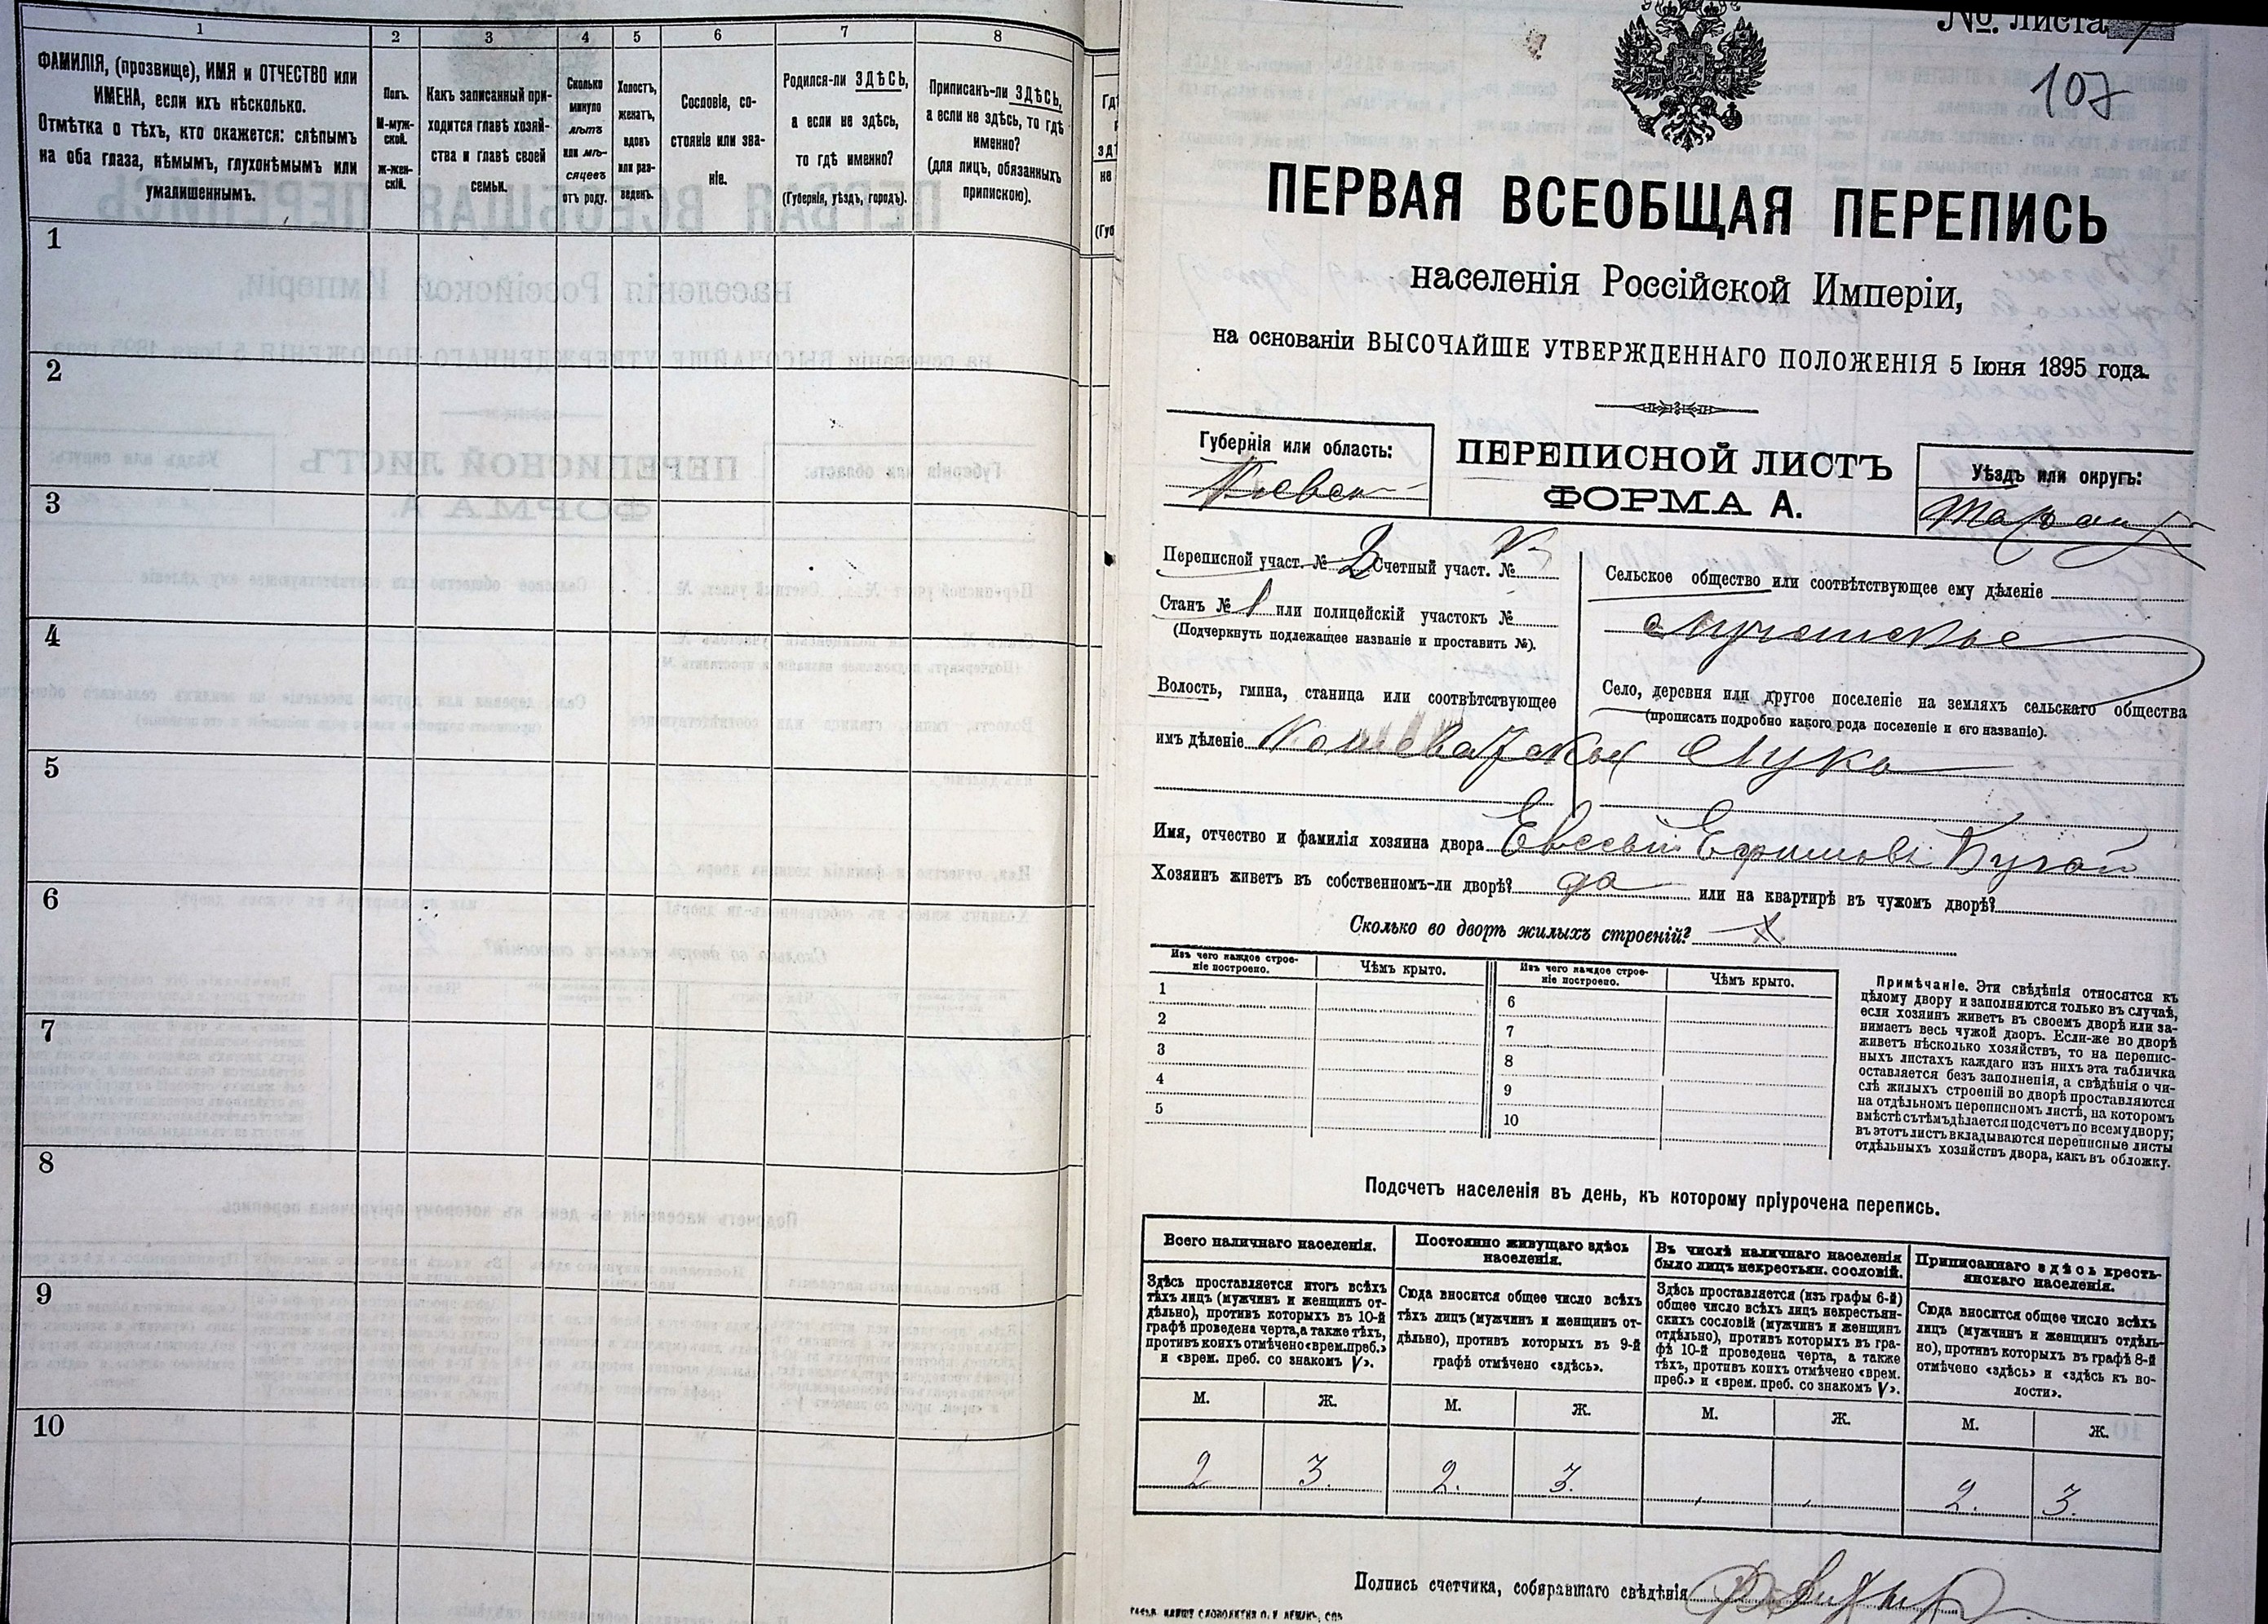 1 2 3 4 5 6 7 8
ФАМИЛІЯ, (прозвище), ИМЯ и ОТЧЕСТВО или
ИМЕНА, если ихъ нѣсколько.
Отмѣтка о тѣхъ, кто окажется: слѣпымъ
на оба глаза, нѣмымъ, глухонѣмымъ или
умалишеннымъ.
Полъ.
М-муж-
ской.
ж-жен-
скій.
Какъ записанный при-
ходится главѣ хозяй-
ства и главѣ своей
семьи.
Сколько
минуло
лѣтъ
или мѣ-
сяцевъ
отъ роду.
Холостъ,
женатъ,
вдовъ
или раз-
веденъ.
Сословіе, со-
стояніе или зва-
ніе.
Родился-ли ЗДѢСЬ,
а если не здѣсь,
то гдѣ именно?
(Губернія, уѣздъ, городъ).
Приписанъ-ли ЗДѢСЬ,
а если не здѣсь, то гдѣ
именно?
(для лицъ, обязанныхъ
припискою).
1
2
3
4
5
6
7
8
9
10
№ листа
107
ПЕРВАЯ ВСЕОБЩАЯ ПЕРЕПИСЬ
населенія Россійской Имперіи,
на основаніи ВЫСОЧАЙШЕ УТВЕРЖДЕННАГО ПОЛОЖЕНІЯ 5 Іюня 1895 года.
Губернія или область:
Кіевск
ПЕРЕПИСНОЙ ЛИСТЪ
ФОРМА А.
Уѣздъ или округъ:
Таращ
Переписной участ. № 2 Счетный участ. №
Станъ № 1 или полицейскій участокъ №
(Подчеркнуть подлежащее названіе и проставить №).
Волость, гмина, станица или соотвѣтствующее
имъ дѣленіе
Сельское общество или соотвѣтствующее ему дѣленіе
Село, деревня или другое поселеніе на земляхъ сельскаго общества
(прописать подробно какого рода поселеніе и его названіе).
Лука
Имя, отчество и фамилія хозяина двора Евсевій Ефимовъ Бугай
Хозяинъ живетъ въ собственномъ-ли дворѣ? да или на квартирѣ въ чужомъ дворѣ?
Сколько во дворѣ жилыхъ строеній?
Изъ чего каждое строе-
ніе построено.
Чѣмъ крыто.
Изъ чего каждое строе-
ніе построено.
Чѣмъ крыто.
1 6
2 7
3 8
4 9
5 10
Примѣчаніе. Эти свѣдѣнія относятся къ
цѣлому двору и заполняются только въ случаѣ,
если хозяинъ живетъ въ своемъ дворѣ или за-
нимаетъ весь чужой дворъ. Если-же во дворѣ
живетъ нѣсколько хозяйствъ, то на перепис-
ныхъ листахъ каждаго изъ нихъ эта табличка
оставляется безъ заполненія, а свѣдѣнія о чи-
слѣ жилыхъ строеній во дворѣ проставляются
на отдѣльномъ переписномъ листѣ, на которомъ
вмѣстѣ съ тѣмъ дѣлается подсчетъ по всему двору;
въ этотъ листъ вкладываются переписные листы
отдѣльныхъ хозяйствъ двора, какъ въ обложку.
Подсчетъ населенія въ день, къ которому пріурочена перепись.
Всего наличнаго населенія.
Здѣсь проставляется итогъ всѣхъ
тѣхъ лицъ (мужчинъ и женщинъ от-
дѣльно), противъ которыхъ въ 10-й
графѣ проведена черта, а также тѣхъ,
противъ коихъ отмѣчено «врем. преб.»
и «врем. преб. со знакомъ V».
Постоянно живущаго здѣсь
населенія.
Сюда вносится общее число всѣхъ
тѣхъ лицъ (мужчинъ и женщинъ от-
дѣльно), противъ которыхъ въ 9-й
графѣ отмѣчено «здѣсь».
Въ числѣ наличнаго населенія
было лицъ некрестьян. сословій.
Здѣсь проставляется (изъ графы 6-й)
общее число всѣхъ лицъ некрестьян-
скихъ сословій (мужчинъ и женщинъ
отдѣльно), противъ которыхъ въ гра-
фѣ 10-й проведена черта, а также
тѣхъ, противъ коихъ отмѣчено «врем.
преб.» и «врем. преб. со знакомъ V».
Приписаннаго здѣсь кресть-
янскаго населенія.
Сюда вносится общее число всѣхъ
лицъ (мужчинъ и женщинъ отдѣль-
но), противъ которыхъ въ графѣ 8-й
отмѣчено «здѣсь» и «здѣсь къ во-
лости».
М. Ж. М. Ж. М. Ж. М. Ж.
2 3. 2. 3. 2. 3.
Подпись счетчика, собиравшаго свѣдѣнія